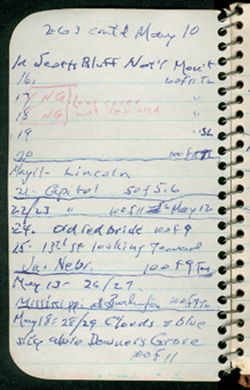 263 cont'd May 10
in Scotts Bluff Nat'l Mon't
16. 100 f 11 TL
17 NG lens cover "
18 NG not removed "
19 "
20 100 f
May 11 - Lincoln
21 - Capitol 50 f 5.6
22/23 " 100 f 11 May 12
24. Old red bridge 100 f 9
25 - 13th st looking toward
Jn. Nebr. 100 f 9
May 13 - 26/27.
Mississippi at Burlington 100 f 9
May 18 - 28/29 Clouds & blue
sky above Downers Grove
100 f 11